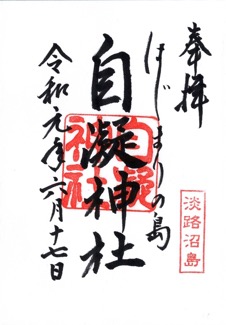 奉拝
はじまりの島
自凝神社
自凝
神社
令和元年六月十七日
淡路沼島